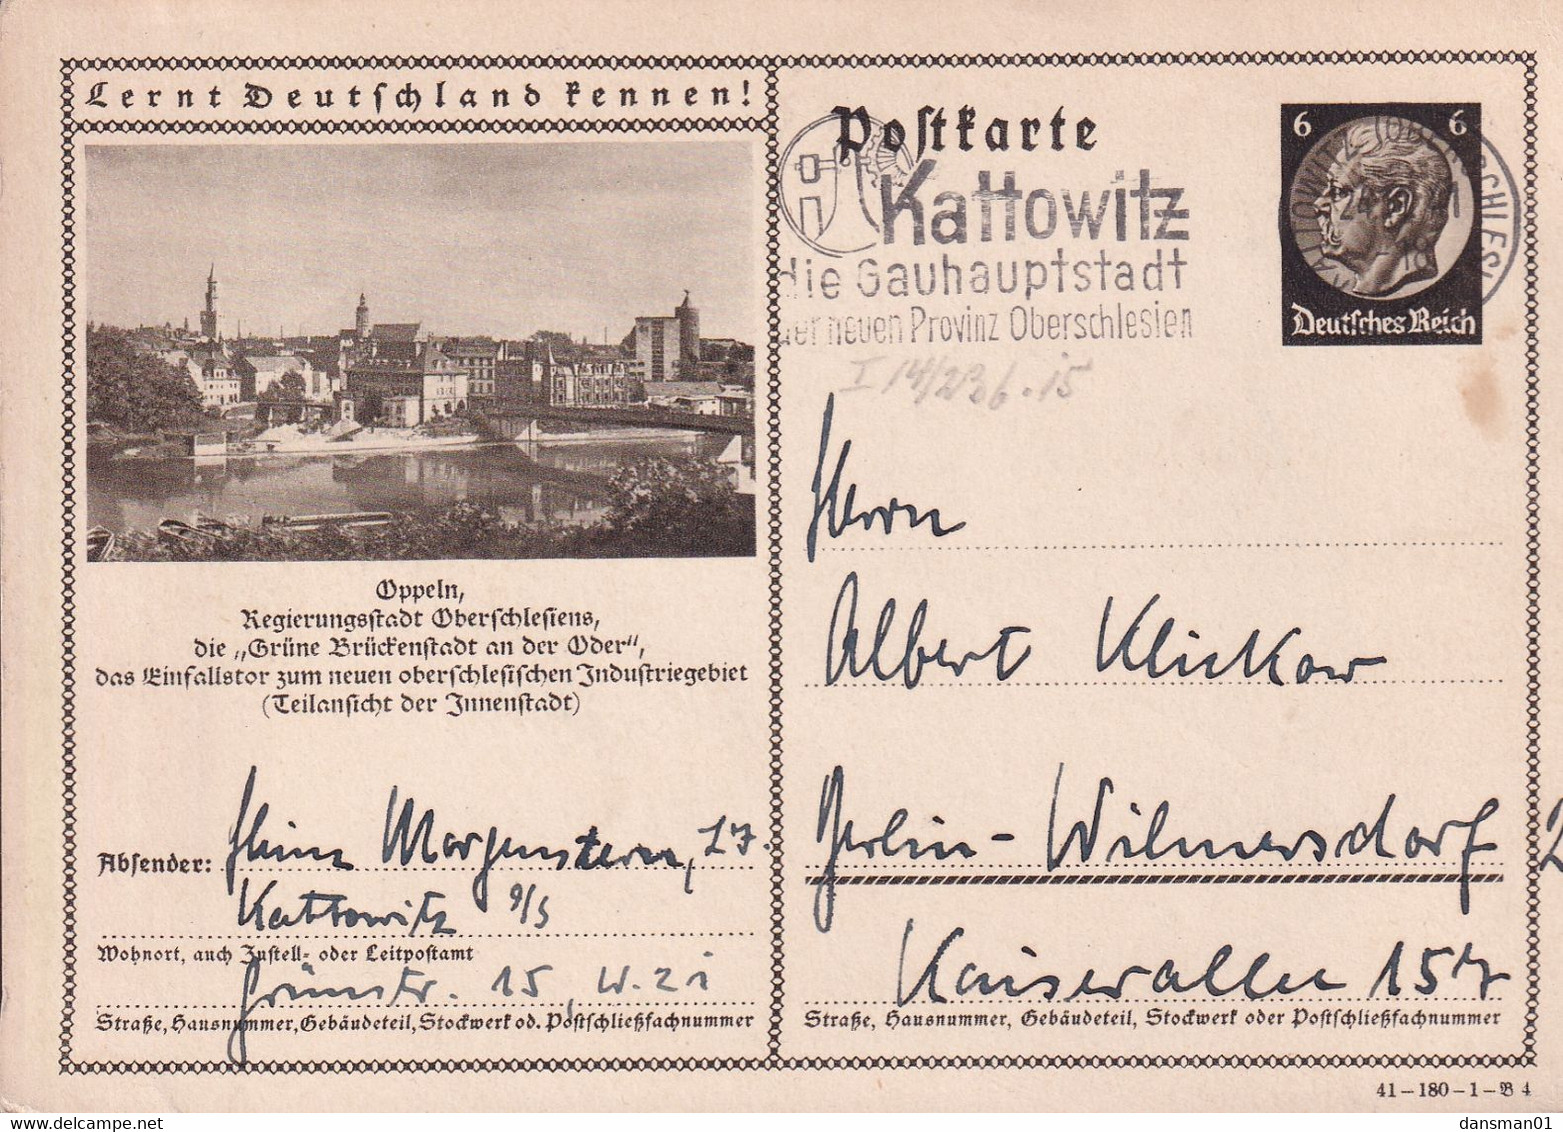 Lernt Deutschland kennen!
Oppeln,
Regierungsstadt Oberschlesiens,
die „Grüne Brückenstadt an der Oder“,
das Einfallstor zum neuen oberschlesischen Industriegebiet
(Teilansicht der Innenstadt)
Absender: Heinz Morgenstern,
Kattowitz 9/S
Wohnort, auch Zustell- oder Leitpostamt
Grünstr. 15, W. 21
Straße, Hausnummer, Gebäudeteil, Stockwerk od. Postschließfachnummer
Postkarte
Kattowitz
die Gauhauptstadt
der neuen Provinz Oberschlesien
6 6
Deutsches Reich
KATTOWITZ (OBERSCHLES)
I 14/236.15
Herrn
Albert Klickow
Berlin-Wilmersdorf
Kaiserallee 157
Straße, Hausnummer, Gebäudeteil, Stockwerk oder Postschließfachnummer
41-180-1-B 4
dansman01